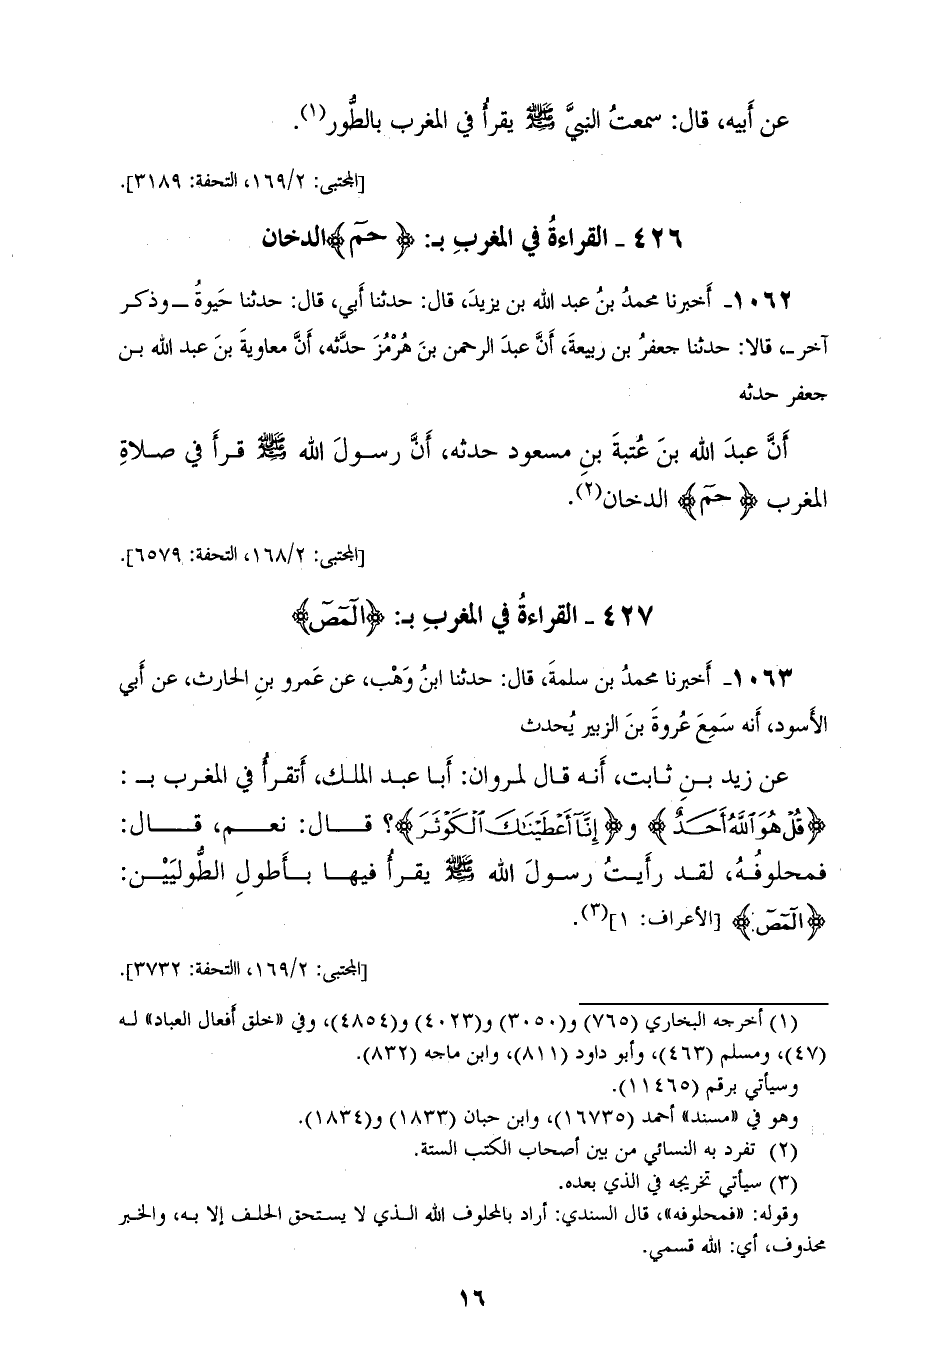 عن أَبيه، قال: سمعتُ النبيَّ ﷺ يقرأُ في المغرب بالطُّور(١).
[المجتبى: ١٦٩/٢، التحفة: ٣١٨٩].
٤٢٦ ـ القراءةُ في المغربِ بـ: ﴿حمٓ﴾الدخان
١٠٦٢ـ أَخبرنا محمدُ بنُ عبد الله بن يزيدَ، قال: حدثنا أَبي، قال: حدثنا حَيوةُ ــ وذكر
آخر ـ، قالا: حدثنا جعفرُ بن ربيعةَ، أَنَّ عبدَ الرحمن بنَ هُرْمُزَ حدَّثه، أَنَّ معاويةَ بنَ عبد الله بـن
جعفر حدثه
أَنَّ عبدَ الله بنَ عُتبةَ بنِ مسعود حدثه، أَنَّ رسـولَ الله ﷺ قـرأَ في صـلاةِ
المغرب ﴿حمٓ﴾ الدخان(٢).
[المجتبى: ١٦٨/٢، التحفة: ٦٥٧٩].
٤٢٧ ـ القراءةُ في المغربِ بـ: ﴿الٓمٓصٓ﴾
١٠٦٣ـ أَخبرنا محمدُ بن سلمةَ، قال: حدثنا ابنُ وَهْب، عن عَمرو بنِ الحارث، عن أَبي
الأَسود، أَنه سَمِعَ عُروةَ بنَ الزبير يُحدث
عن زيد بـنِ ثـابت، أَنـه قـال لمروان: أَبـا عبـد الملـك، أَتقـرأُ في المغرب بـ :
﴿قُلْ هُوَ ٱللَّهُ أَحَـدٌ﴾ و﴿إِنَّآ أَعْطَيْنَـٰكَ ٱلْكَوْثَـرَ﴾؟ قـــال: نعـــم، قـــال:
فمحلوفُـهُ، لقـد رأَيـتُ رسـولَ الله ﷺ يقـرأُ فيهـا بـأَطولِ الطُّوليَيْـن:
﴿الٓمٓصٓ﴾ [الأَعراف: ١](٣).
[المجتبى: ١٦٩/٢، االتحفة: ٣٧٣٢].
(١) أخرجه البخاري (٧٦٥) و(٣٠٥٠) و(٤٠٢٣) و(٤٨٥٤)، وفي «خلق أَفعال العباد» لـه
(٤٧)، ومسلم (٤٦٣)، وأبو داود (٨١١)، وابن ماجه (٨٣٢).
وسيأتي برقم (١١٤٦٥).
وهو في «مسند» أحمد (١٦٧٣٥)، وابن حبان (١٨٣٣) و(١٨٣٤).
(٢) تفرد به النسائي من بين أصحاب الكتب الستة.
(٣) سيأتي تخريجه في الذي بعده.
وقوله: «فمحلوفه»، قال السندي: أراد بالمحلوف الله الـذي لا يسـتحق الحلـف إلا بـه، والخـبر
محذوف، أي: الله قسمي.
١٦